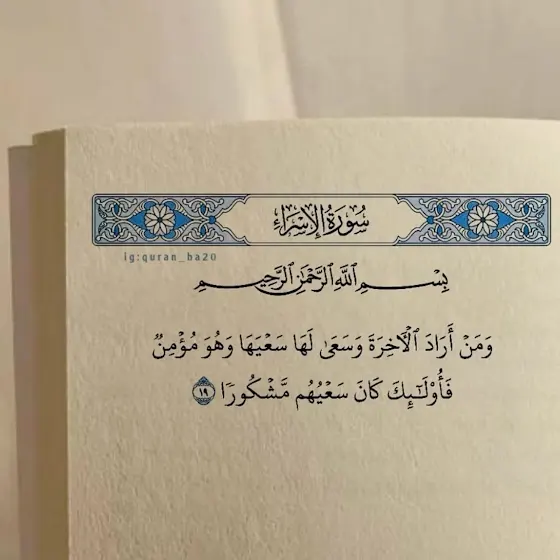 سُورَةُ الإِسْرَاءِ
ig:quran_ba20
بِسْمِ ٱللَّهِ ٱلرَّحْمَٰنِ ٱلرَّحِيمِ
وَمَنْ أَرَادَ ٱلْـَٔاخِرَةَ وَسَعَىٰ لَهَا سَعْيَهَا وَهُوَ مُؤْمِنٌ
فَأُو۟لَـٰٓئِكَ كَانَ سَعْيُهُم مَّشْكُورًا ١٩